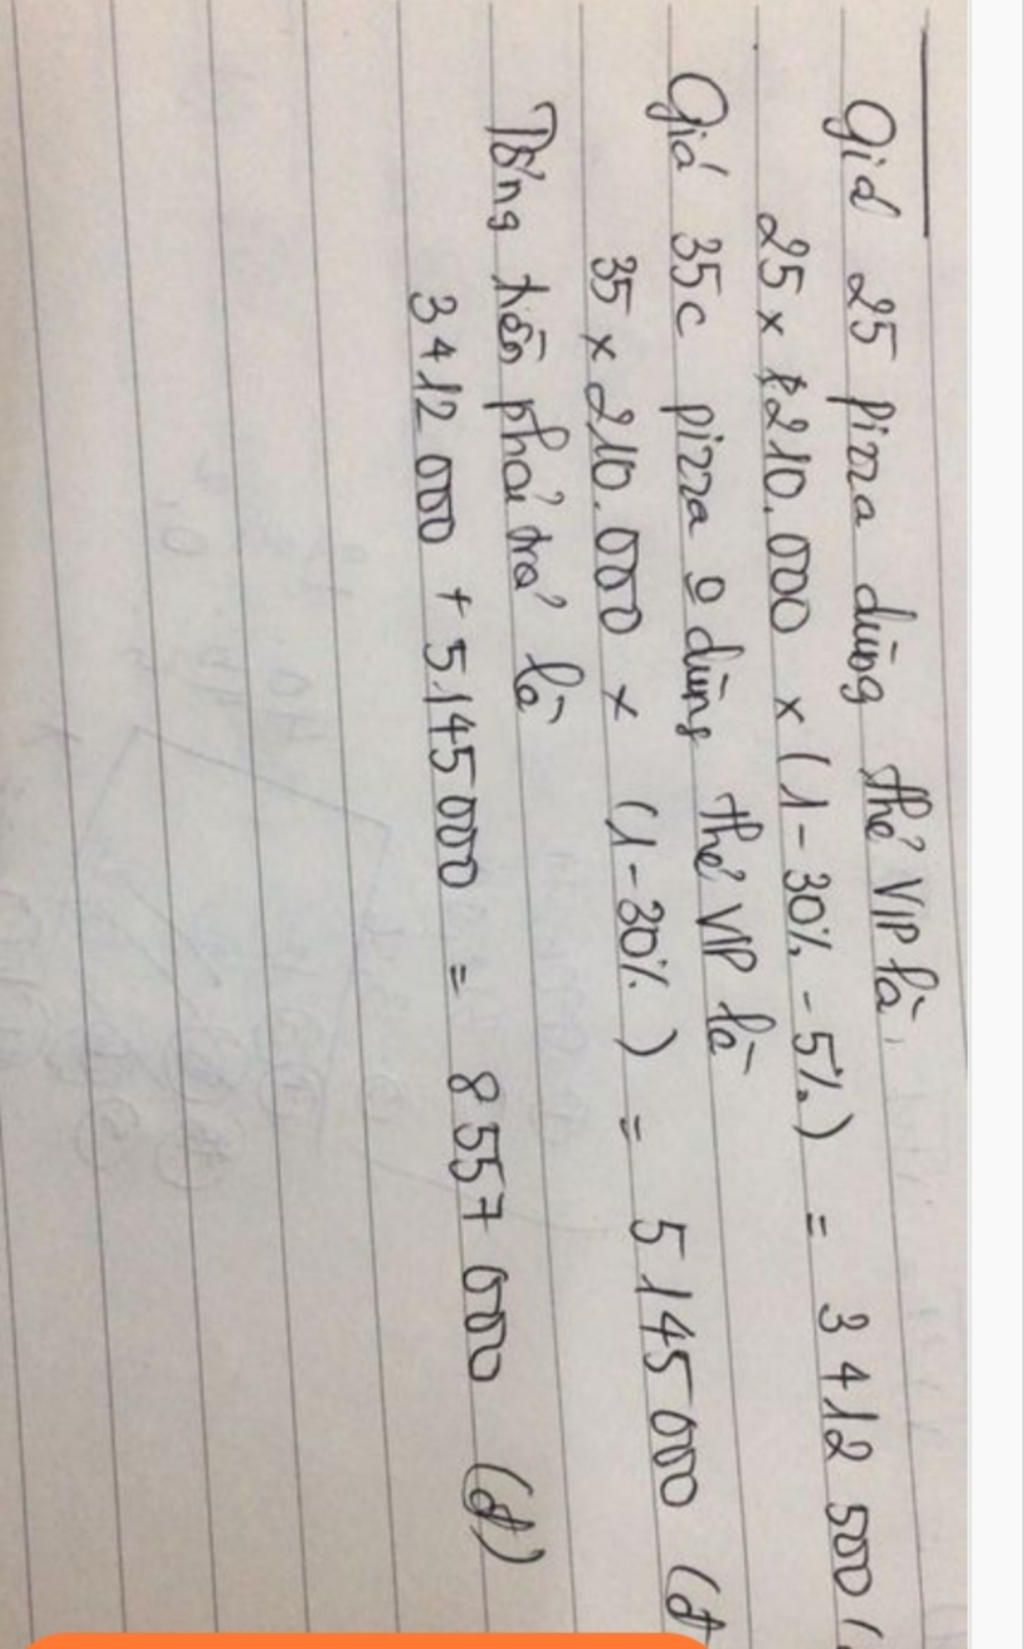 Giá 25 pizza dùng thẻ VIP là
25 x 210.000 x (1 - 30% - 5%) = 3 412 500 (
Giá 35c pizza o dùng thẻ VIP là
35 x 210.000 x (1 - 30%) = 5 145 000 (đ
Tổng tiền phải trả là
3 412 000 + 5.145 000 = 8 557 000 (đ)